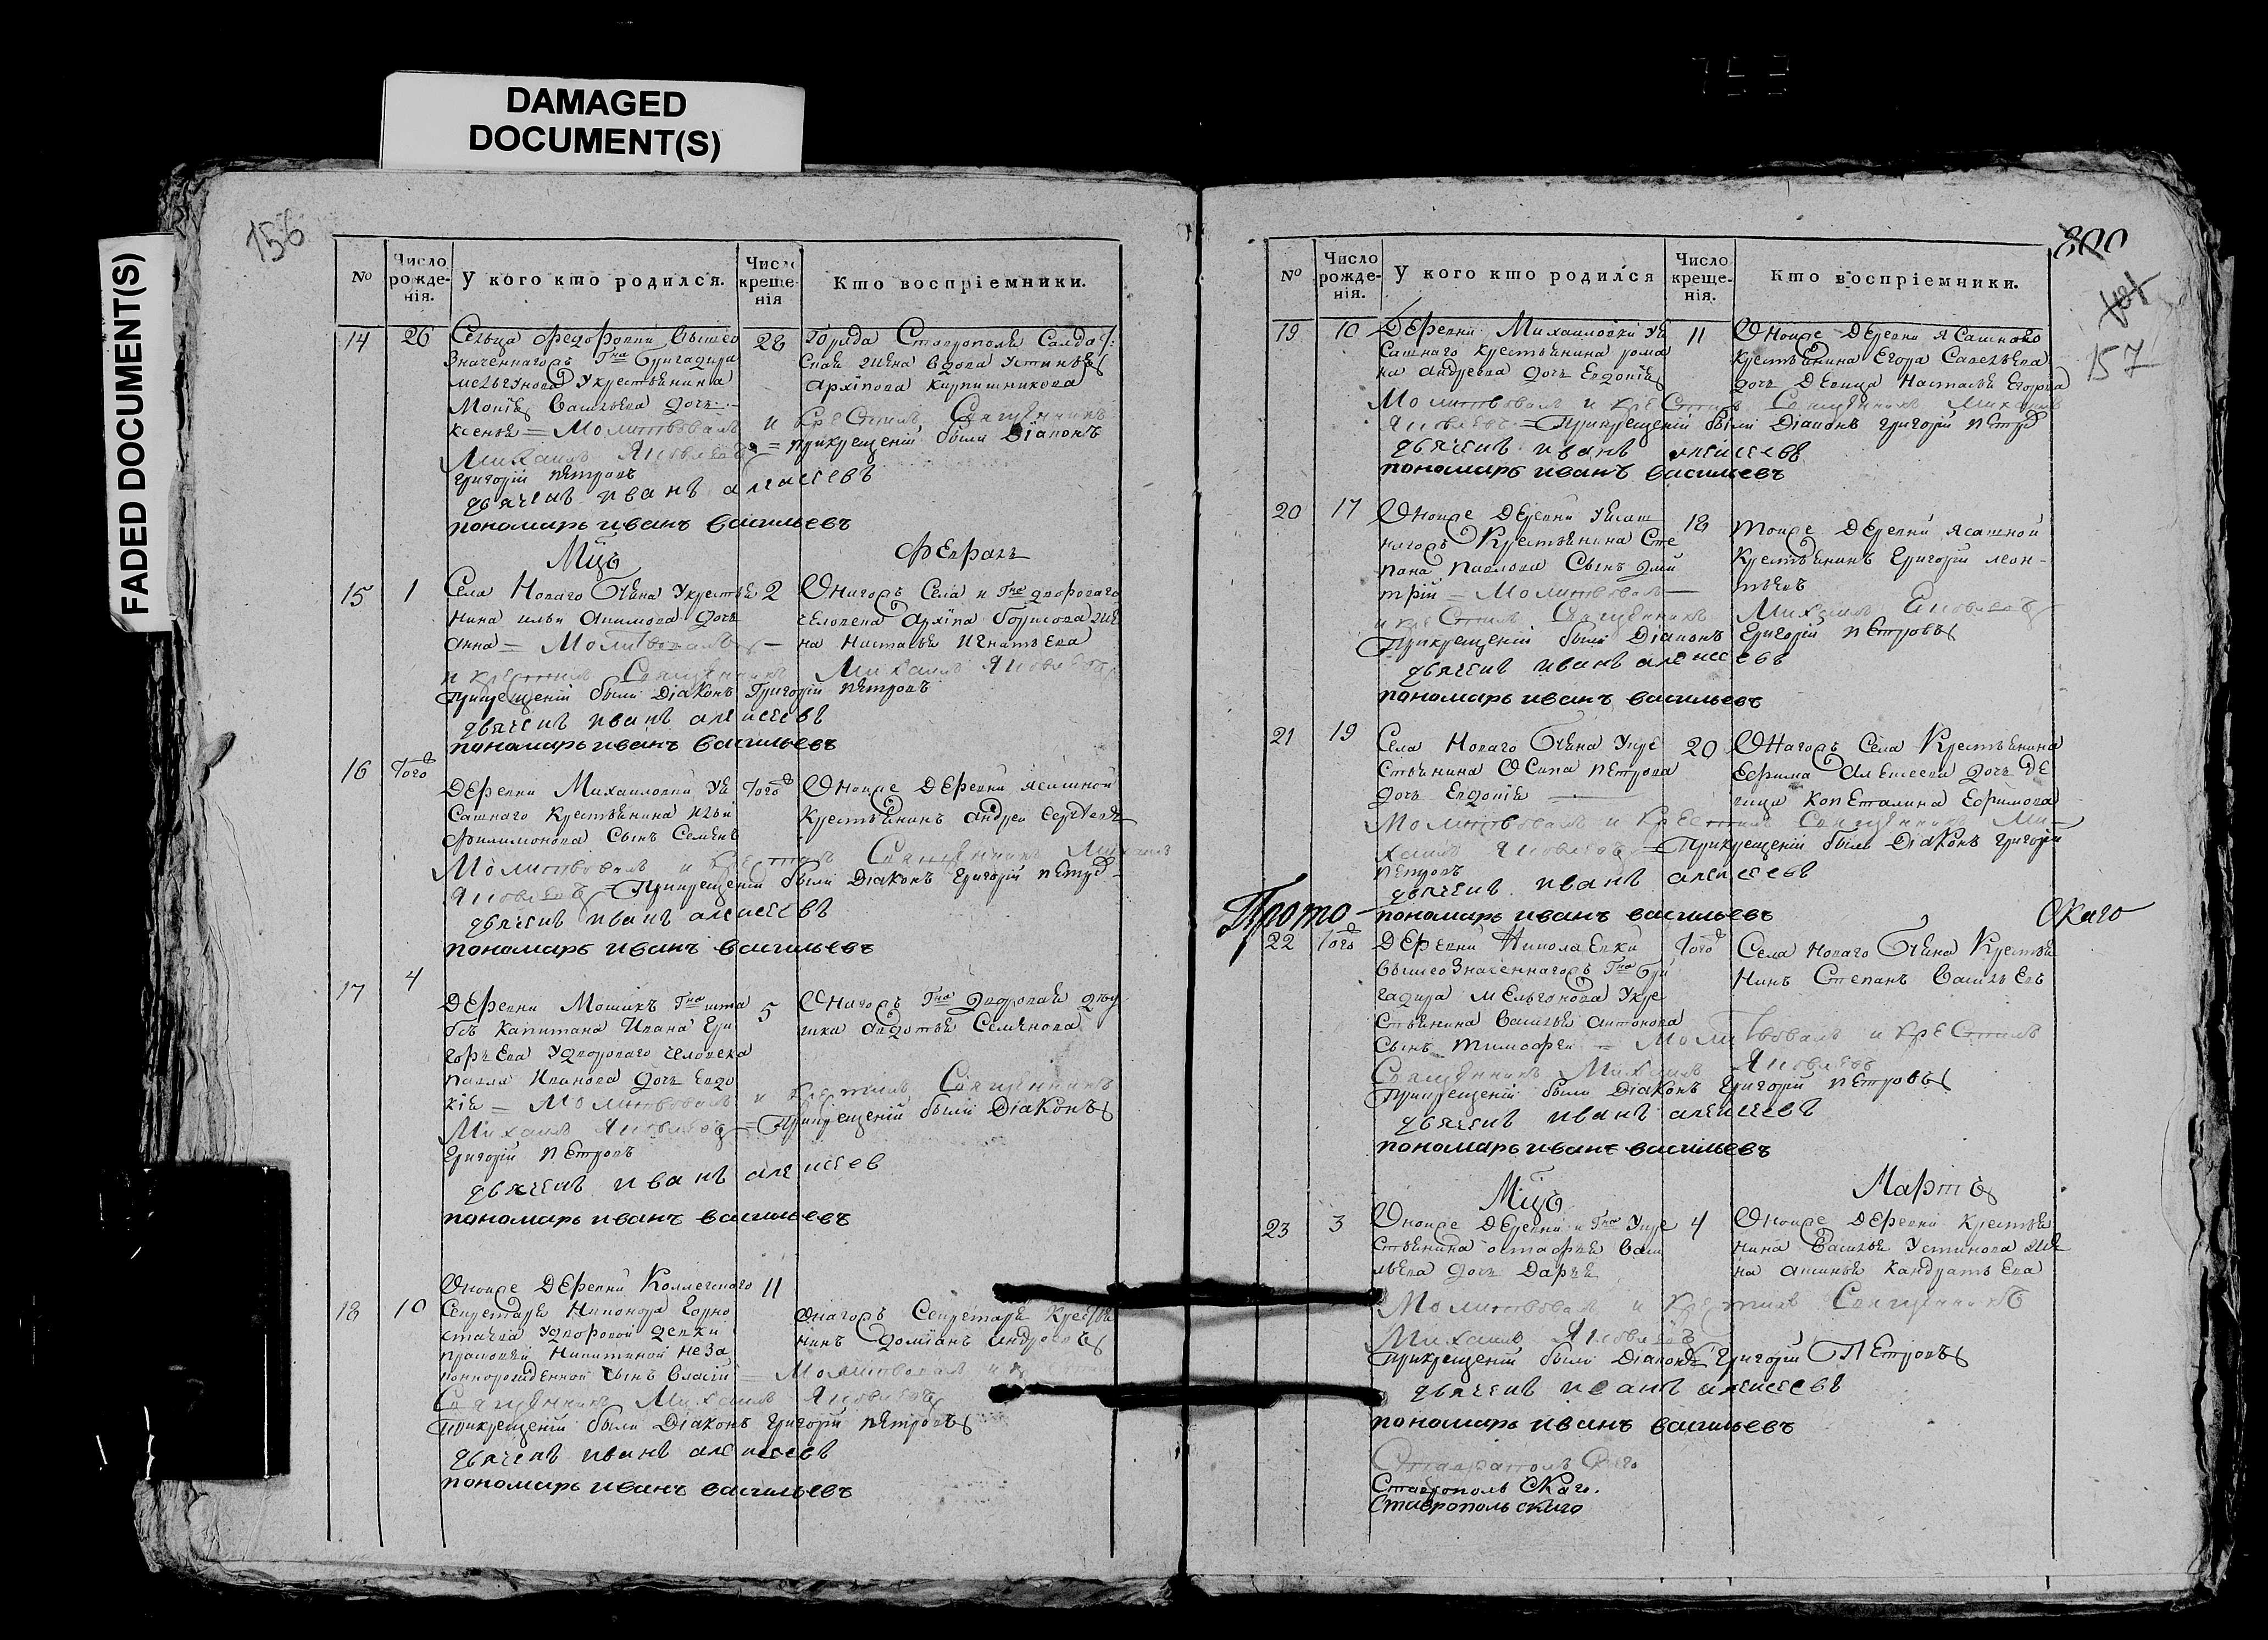 DAMAGED
DOCUMENT(S)
FADED DOCUMENT(S)
156
№
Число рожденія.
У кого кто родился.
Число крещенія
Кто воспріемники.
14
26
Сельца Федоровки вышео
значеннагожъ Гна Бригадира
Мельгунова Укрестьянина
Мокія Васильева дочь
ксенья = Молитвовалъ и крестилъ Священникъ
Михаилъ Яковлевъ = прикрещеніи были Діаконъ
григорій Петровъ
дьячекъ иванъ алексеевъ
пономарь иванъ васильевъ
28
Города Ставрополя Салдат:
ская жена вдова Устинья
Архипова кирпишникова
Мцъ
Февраль
15
1
Села Новаго
Укрестья
нина ильи
дочь
анна = Молитвовалъ
и крестилъ Священникъ Михаилъ Яковлевъ
Прикрещеніи были Діаконъ Григорій Петровъ
дьячекъ иванъ алексеевъ
пономарь иванъ васильевъ
2
Оногожъ Села и Гна двороваго
человека Архипа борисова же
на Настасья Игнатьева
16
Того
Деревни Михаиловки Уя
сашнаго крестьянина
Филимонова Сынъ Семенъ
Молитвовалъ и крестилъ Священникъ Михаилъ
Яковлевъ = Прикрещеніи были Діаконъ Григорій Петро
дьячекъ иванъ алексеевъ
пономарь иванъ васильевъ
Того
Оноиже Деревни ясашной
крестьянинъ андреи сергеевъ
17
4
Деревни Мошихъ Гна шта
бсъ капитана Ивана Гри
горьева Удвороваго человека
павла Иванова дочь Евдо
кія = Молитвовалъ и крестилъ Священникъ
Михаилъ Яковлевъ = Прикрещеніи были Діаконъ
Григорій Петровъ
дьячекъ иванъ алексеев
пономарь иванъ васильевъ
5
Оногожъ Гна дворовая
авдотья Семенова
18
10
Оноиже Деревни Коллежнаго
Секретаря Никонора Горно
стаева Удворовой девки
прасковьи Никитиной неза
коннорожденной сынъ власій = Молитвовалъ и крестилъ
Священникъ Михаилъ Яковлевъ
прикрещеніи были Діаконъ григорій Петровъ
дьячекъ иванъ алексеевъ
пономарь иванъ васильевъ
11
Онагожъ Секретаря Крестья
нинъ доміанъ андреевъ
800
157
№
Число рожденія.
У кого кто родился
Число крещенія.
Кто воспріемники.
19
10
Деревни Михаиловки Уя
сашнаго крестьянина рома
на андреева дочь Евдокія
Молитвовалъ и крестилъ Священникъ Михаилъ
Яковлевъ = Прикрещеніи были Діаконъ григорій Петро
дьячекъ иванъ алексеевъ
пономарь иванъ васильевъ
11
Оноиже Деревни ясашново
крестьянина Егора Савельева
дочь девица Настасья Егорова
20
17
Оноиже Деревни Уясаш
нагожъ Крестьянина Сте
пана павлова Сынъ дми
трій = Молитвовалъ
и крестилъ Священникъ Михаилъ Яковлевъ
Прикрещеніи были Діаконъ Григорій Петровъ
дьячекъ иванъ алексеевъ
пономарь иванъ васильевъ
18
тоиже Деревни ясашной
Крестьянинъ Григорій леон-
тьевъ
21
19
Села Новаго
Укре
стьянина Осипа петрова
дочь Евдокія
Молитвовалъ и крестилъ Священникъ Ми-
хаилъ Яковлевъ = Прикрещеніи были Діаконъ григорій
Петровъ
дьячекъ иванъ алексеевъ
пономарь иванъ васильевъ
20
Онагожъ Села Крестьянина
Ефрима Алексеева дочь де
вица
Ефримова
Прото-
Окаго
22
Того
Деревни Николаевки
вышеозначеннагожъ Гна бри
гадира мельгонова Укре
стьянина Василья антонова
Сынъ Тимофеи = Молитвовалъ и крестилъ
Священникъ Михаилъ Яковлевъ
Прикрещеніи были Діаконъ Григорій Петровъ
дьячекъ иванъ алексеевъ
пономарь иванъ васильевъ
Того
Села новаго
Крестья
нинъ Степанъ васильевъ
Мцъ
Мартъ
23
3
Оноиже Деревни и Гна Укре
стьянина остафья васи
льева дочь Дарья
Молитвовалъ и крестилъ Священникъ
Михаилъ Яковлевъ
Прикрещеніи были Діаконъ Григорій Петровъ
дьячекъ иванъ алексеевъ
пономарь иванъ васильевъ
4
Оноиже Деревни крестья
нина Василья Устинова же
на аксинья кандратьева
Ставропольскаго
Ставропольскаго.
Ставропольскиго